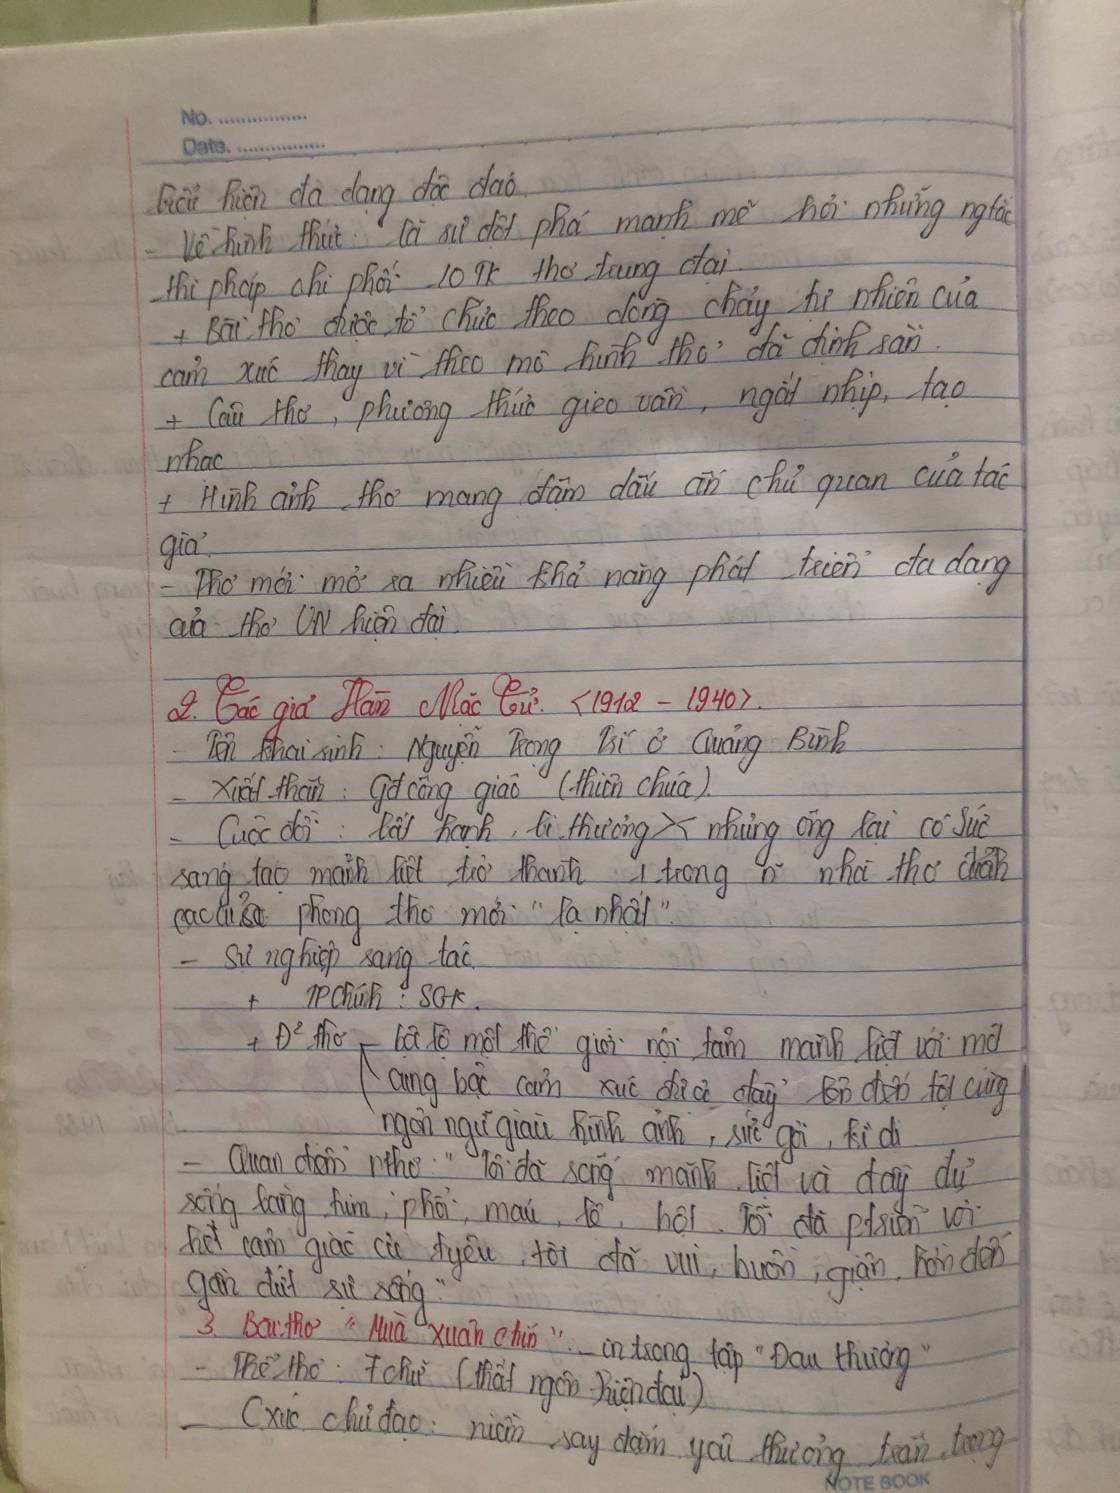 No. ................
Date. ................
biểu hiện đa dạng độc đáo.
- Về hình thức: là sự đột phá mạnh mẽ hỏi những ngtắc
thi pháp chi phối 10 TK thơ trung đại.
+ Bài thơ được tổ chức theo dòng chảy tự nhiên của
cảm xúc thay vì theo mô hình thơ đã định sẵn.
+ Câu thơ, phương thức gieo vần, ngắt nhịp, tạo
nhạc
+ Hình ảnh thơ mang đậm dấu ấn chủ quan của tác
giả.
- Thơ mới mở ra nhiều khả năng phát triển đa dạng
của thơ VN hiện đại.
2. Tác giả Hàn Mặc Tử. <1912 - 1940>.
- Tên khai sinh: Nguyễn Trọng Trí ở Quảng Bình
- Xuất thân: Gđ công giáo (thiên chúa)
- Cuộc đời: bất hạnh, bi thương >< nhưng ông lại có sức
sáng tạo mãnh liệt trở thành 1 trong n~ nhà thơ đỉnh
cao của phong thơ mới "lạ nhất".
- Sự nghiệp sáng tác.
+ TP chính: SGK.
+ Đ² thơ - bộc lộ một thế giới nội tâm mãnh liệt với mỗi
cung bậc cảm xúc được đẩy lên đến tột cùng
ngôn ngữ giàu hình ảnh, sức gợi, kì dị
- Quan điểm thơ: "Tôi đã sống mãnh liệt và đầy đủ
sống bằng tim, phổi, máu, lệ, hồn. Tôi đã ptriển với
hết cảm giác của tyêu, tôi đã vui, buồn, giận, hờn đến
gần đứt sự sống"
3. Bài thơ "Mùa xuân chín" - in trong tập "Đau thương"
- Thể thơ: 7 chữ (thất ngôn hiện đại)
- Cxúc chủ đạo: niềm say đắm yêu thương trân trọng
NOTE BOOK